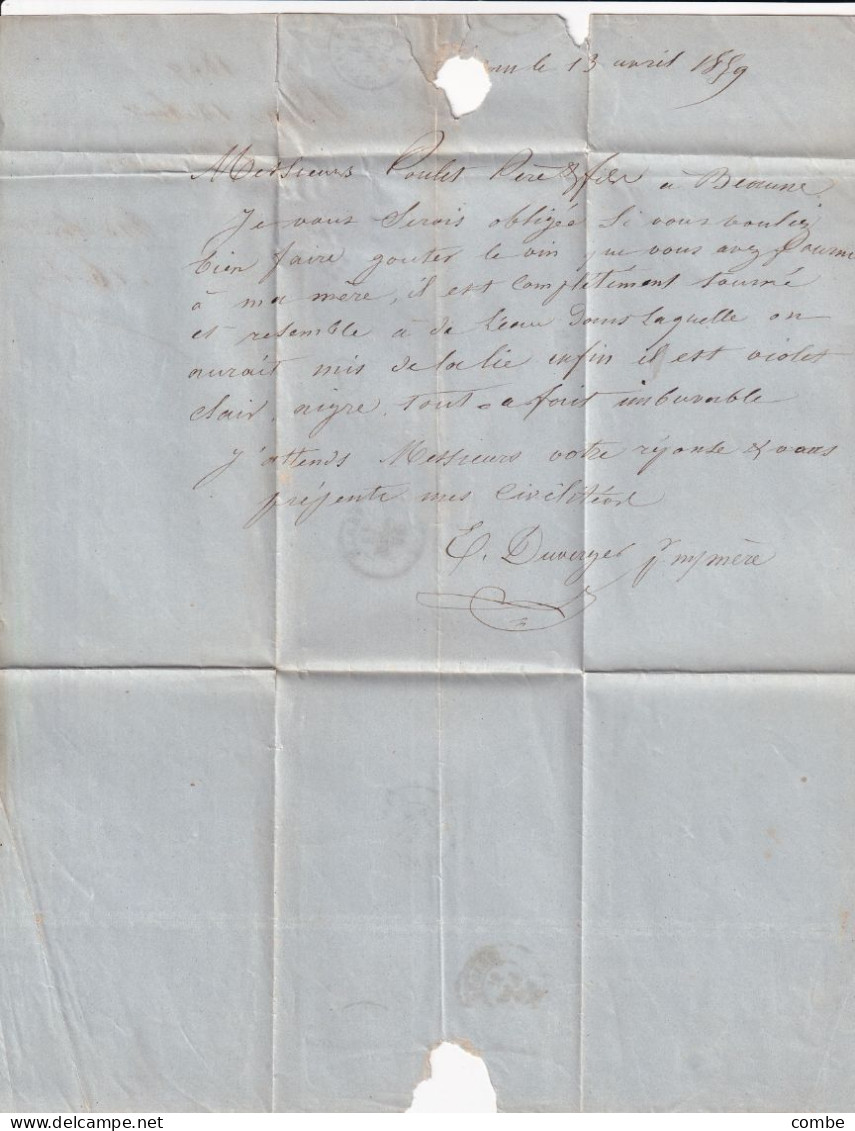 le 13 avril 1859
Messieurs Poulet Père & fils à Beaune
Je vous serois obligée si vous vouliez
bien faire gouter le vin que vous avez fourni
à ma mère, il est complètement tourné
et resemble à de l'eau dans laquelle on
aurait mis de la lie enfin il est violet
clair, aigre, tout-a fait imbuvable
J'attends Messieurs votre réponse & vous
présente mes civilités
E. Duverger pr ma mère
www.delcampe.net
combe